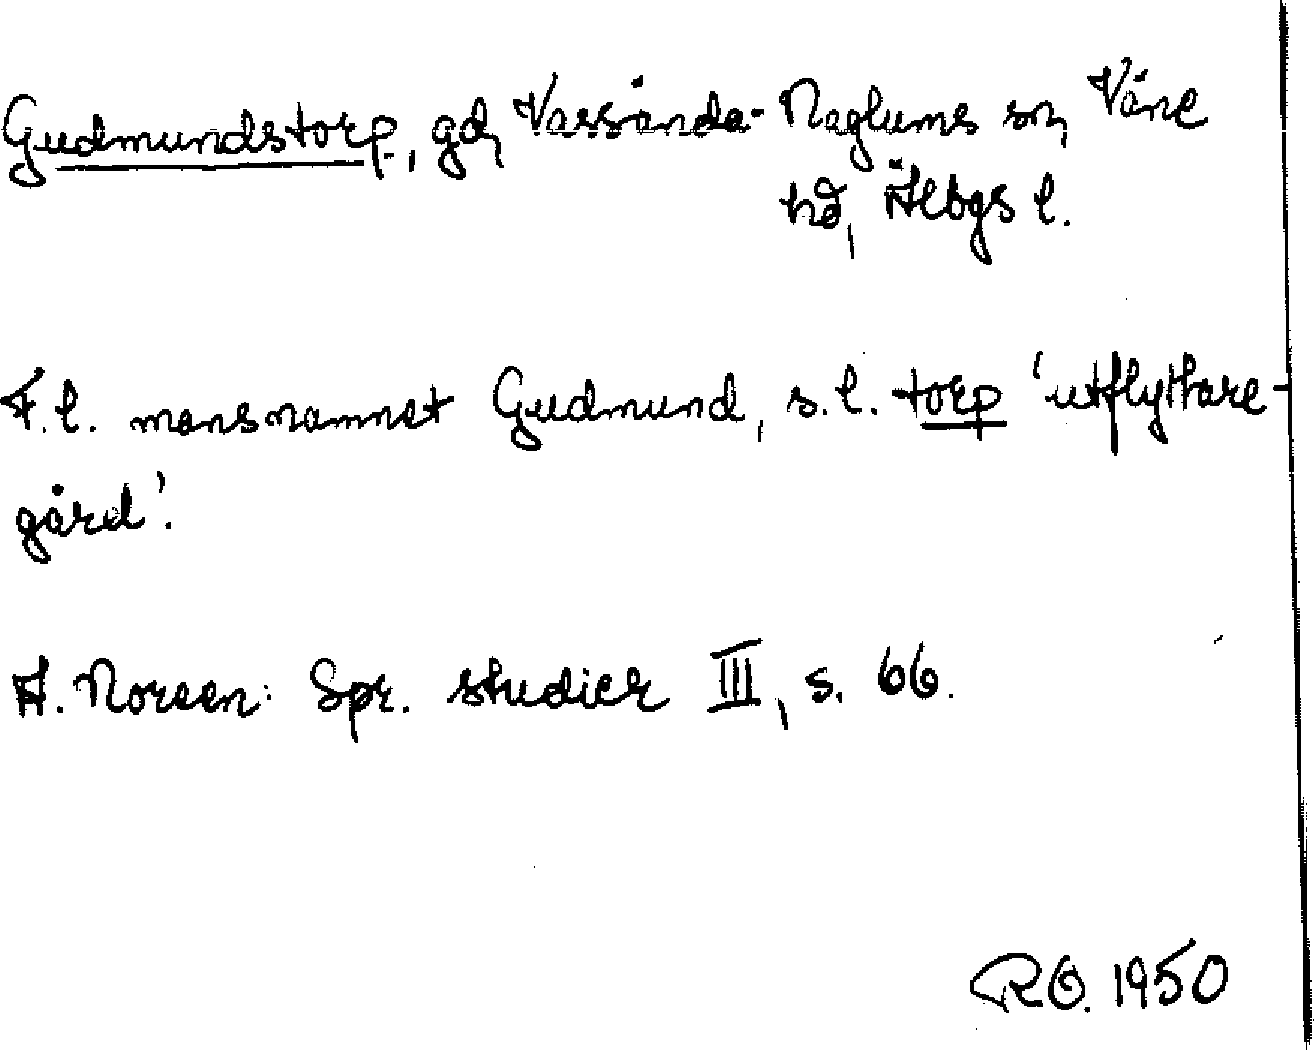 Gudmundstorp, gd, Vassända-Naglums sn, Väne
hd, Älvbgs l.
F.l. mansnamnet Gudmund, s.l. torp 'utflyttare-
gård'.
A. Noreen: Spr. studier III, s. 66.
RO. 1950